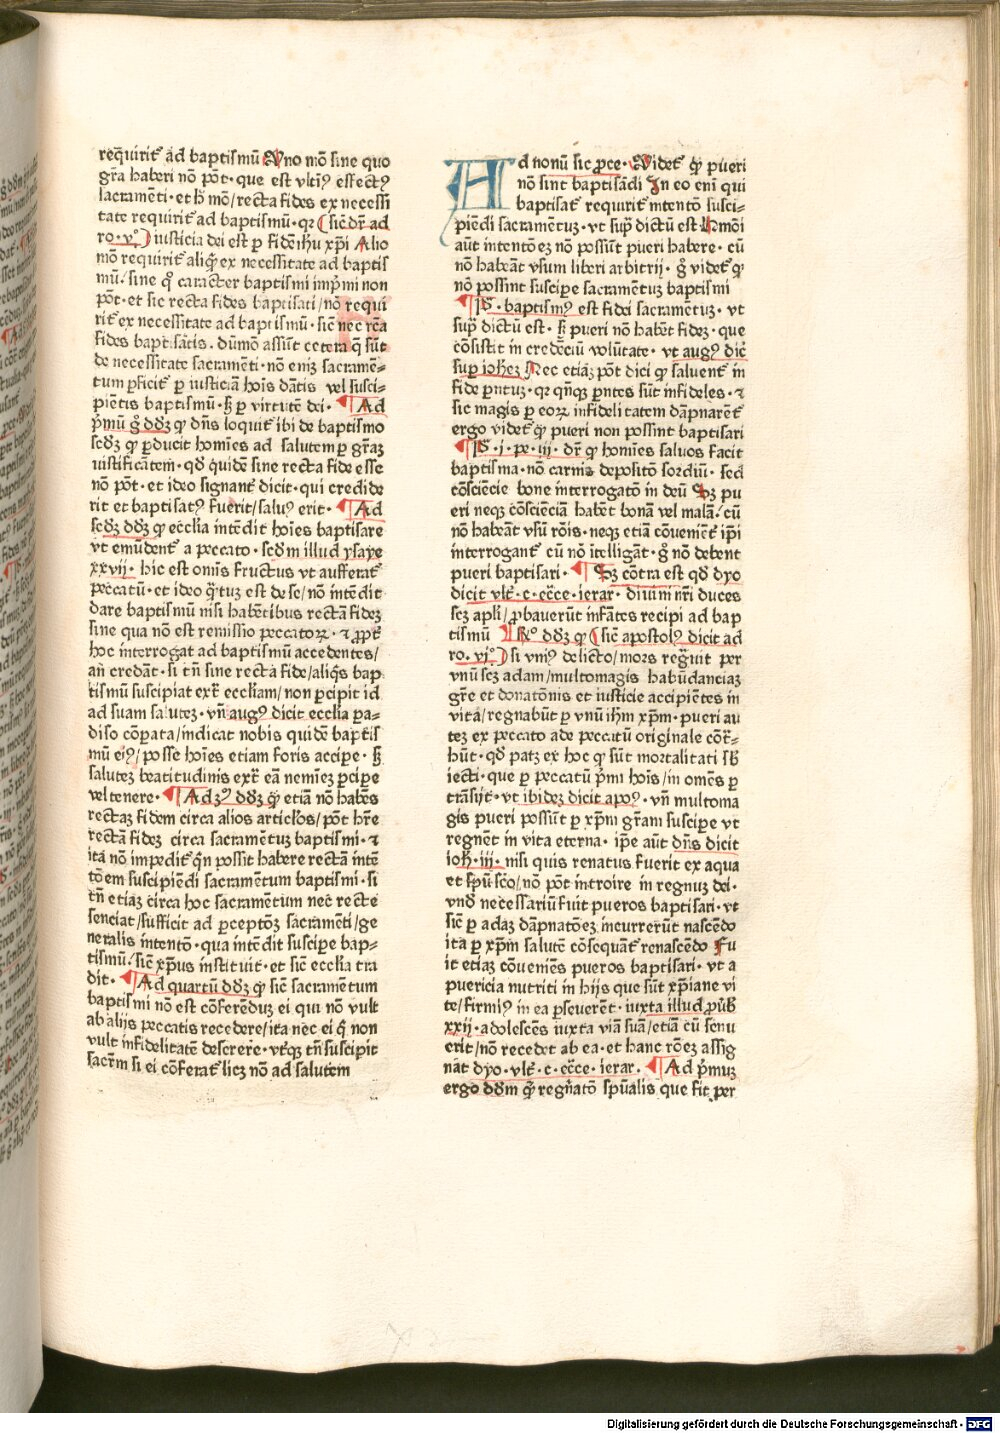 requirit᷑ ad baptismū Uno mō sine quo
gr̄a haberi nō pōt · que est vltiꝰ effectꝰ
sacramēti · et h̄ mō / recta fides ex necessi
tate requirit᷑ ad baptismū · qꝛ ( sic̄ dr̄ ad
ro · vͦ · ) iusticia dei est ꝑ fidē ih̄u xp̄i Alio
mō requirit᷑ aliqͥd ex necessitate ad baptis
mū / sine qͦ caracter baptismi imp̄mi non
pōt · et sic recta fides baptisati / nō requi
rit᷑ ex necessitate ad baptismū · sic̄ nec rc̄a
fides baptisātis · dūmō assint cetera q̄ sūt
de necessitate sacramēti · nō eniꝫ sacramē⸗
tum ꝑficit᷑ ꝑ iusticiā hoīs dātis vel susci⸗
piētis baptismū · sꝫ ꝑ virtutē dei · ¶ Ad
p̄mū gͦ ddꝫ ꝙ dn̄s loquit᷑ ibi de baptismo
scd̄ꝫ ꝙ ꝑducit homīes ad salutem ꝑ gr̄aꝫ
iustificātem · qd̄ quidē sine recta fide esse
nō pōt · et ideo signant᷑ dicit · qui credide
rit et baptisatꝰ fuerit / saluꝰ erit · ¶ Ad
scd̄ꝫ ddꝫ ꝙ ecclīa intēdit hoīes baptisare
vt emūdent᷑ a peccato · scd̄m illud ysaye
xxvij · hic est omīs fructus vt aufferat᷑
peccatū · et ideo qͣtuꝫ est de se / nō intēdit
dare baptismū nisi habētibus rectā fideꝫ
sine qua nō est remissio peccatoꝝ · ⁊ ꝓpt᷑
hoc interrogat ad baptismū accedentes /
an̄ credāt · si tn̄ sine recta fide / aliqͥs bap
tismū suscipiat extͣ eccl̄iam / non ꝑcipit id
ad suam salutez · vn̄ augꝰ dicit ecclīa pa⸗
diso cōꝑata / indicat nobis quidē baptis
mū eiꝰ / posse hoīes etiam foris accipe · sꝫ
salutez beatitudinis extͣ eā nemīeꝫ ꝑcipe
vel tenere · ¶ Ad 3ꝰ ddꝫ ꝙ etiā nō habēs
rectaꝫ fidem circa alios articl̄os / pōt hr̄e
rectā fideꝫ circa sacramētuꝫ baptismi · ⁊
ita nō impedit᷑ qͥn possit habere rectā intē
tōem suscipiēdi sacramētum baptismi · si
tn̄ etiaꝫ circa hoc sacramētum nec recte
senciat / sufficit ad ꝑceptōꝫ sacramēti / ge
neralis intentō · qua intēdit suscipe bap⸗
tismū / sic̄ xp̄us instituit · et sic̄ ecclīa tra
dit · ¶ Ad quartū ddꝫ ꝙ sic̄ sacramētum
baptismi nō est cōferēduꝫ ei qui nō vult
ab alijs peccatis recedere / ita nec ei qͥ non
vult infidelitatē deserere · vtͤqꝫ tn̄ suscipit
sacr̄m si ei cōferat᷑ licꝫ nō ad salutem
Ad nonū sic ꝓce · Videt᷑ ꝙ pueri
nō sint baptisādi In eo enī qui
baptisat᷑ requirit᷑ intentō susci⸗
piēdi sacramētuꝫ · vt supͣ dictū est Hmōi
aūt intentōeꝫ nō possūt pueri habere · cū
nō habeāt vsum liberi arbitrij · gͦ videt᷑ ꝙ
nō possint suscipe sacramētuꝫ baptismi
¶ Pͣ · baptismꝰ est fidei sacramētuꝫ · vt
supͣ dictū est · sꝫ pueri nō habēt fideꝫ · que
cōsistit in credēciū volūtate · vt augꝰ dic̄
suꝑ iohēꝫ Nec etiaꝫ pōt dici ꝙ saluent᷑ in
fide parētuꝫ · qꝛ qn̄qꝫ parētes sūt infideles · ⁊
sic magis ꝑ eoꝝ infidelitatem dāpnarēt᷑
ergo videt᷑ ꝙ pueri non possint baptisari
¶ Pͣ · i · pe · iij · dr̄ ꝙ homīes saluos facit
baptisma · nō carnis depositō sordiū · sed
cōsciēcie bone interrogatō in deū Sꝫ pu
eri neqꝫ cōsciēciā habēt bonā vel malā / cū
nō habeāt vsū rōis · neqꝫ etiā cōueniēt᷑ ip̄i
interrogant᷑ cū nō ītelligāt · gͦ nō debent
pueri baptisari · ¶ Sꝫ cōtra est qd̄ dyo
dicit vlt᷑ · c · ecc̄e · ierar · diuini nr̄i duces
scꝫ apl̄i / ꝓbauerūt infātes recipi ad bap
tismū ¶ Rͦ ddꝫ ꝙ ( sic̄ apostolꝰ dicit ad
ro · vjͦ · ) si vniꝰ delicto / mors regͣuit per
vnū scꝫ adam / multomagis habūdanciaꝫ
gr̄e et donatōnis et iusticie accipiētes in
vita / regnabūt ꝑ vnū ih̄m xp̄m · pueri au
teꝫ ex peccato ade peccatū originale cōtͣ⸗
hūt · qd̄ patꝫ ex hoc ꝙ sūt mortalitati sb̄
iecti · que ꝑ peccatū p̄mi hoīs / in omēs ꝑ
trāsijt · vt ibidez dicit apoꝰ · vn̄ multoma
gis pueri possūt ꝑ xp̄m gr̄am suscipe vt
regnēt in vita eterna · ip̄e aūt dn̄s dicit
ioh̄ · iij · nisi quis renatus fuerit ex aqua
et spū scō / nō pōt introire in regnuꝫ dei ·
vnd̄ necessariū fuit pueros baptisari · vt
sic̄ ꝑ adaꝫ dāpnatōeꝫ incurrerūt nascēdo
ita ꝑ xp̄m salutē cōsequāt᷑ renascēdo Fu
it etiaꝫ cōueniēs pueros baptisari · vt a
puericia nutriti in hijs que sūt xp̄iane vi
te / firmiꝰ in ea ꝑseuerēt · iuxta illud ꝓub̄
xxij · adolescēs iuxta viā suā / etiā cū senu
erit / nō recedet ab ea · et hanc rōeꝫ assig
nāt dyo · vlt᷑ · c · ecc̄e · ierar · ¶ Ad p̄muꝫ
ergo ddm ꝙ regn̄atō spūalis que fit per
Digitalisierung gefördert durch die Deutsche Forschungsgemeinschaft - DFG